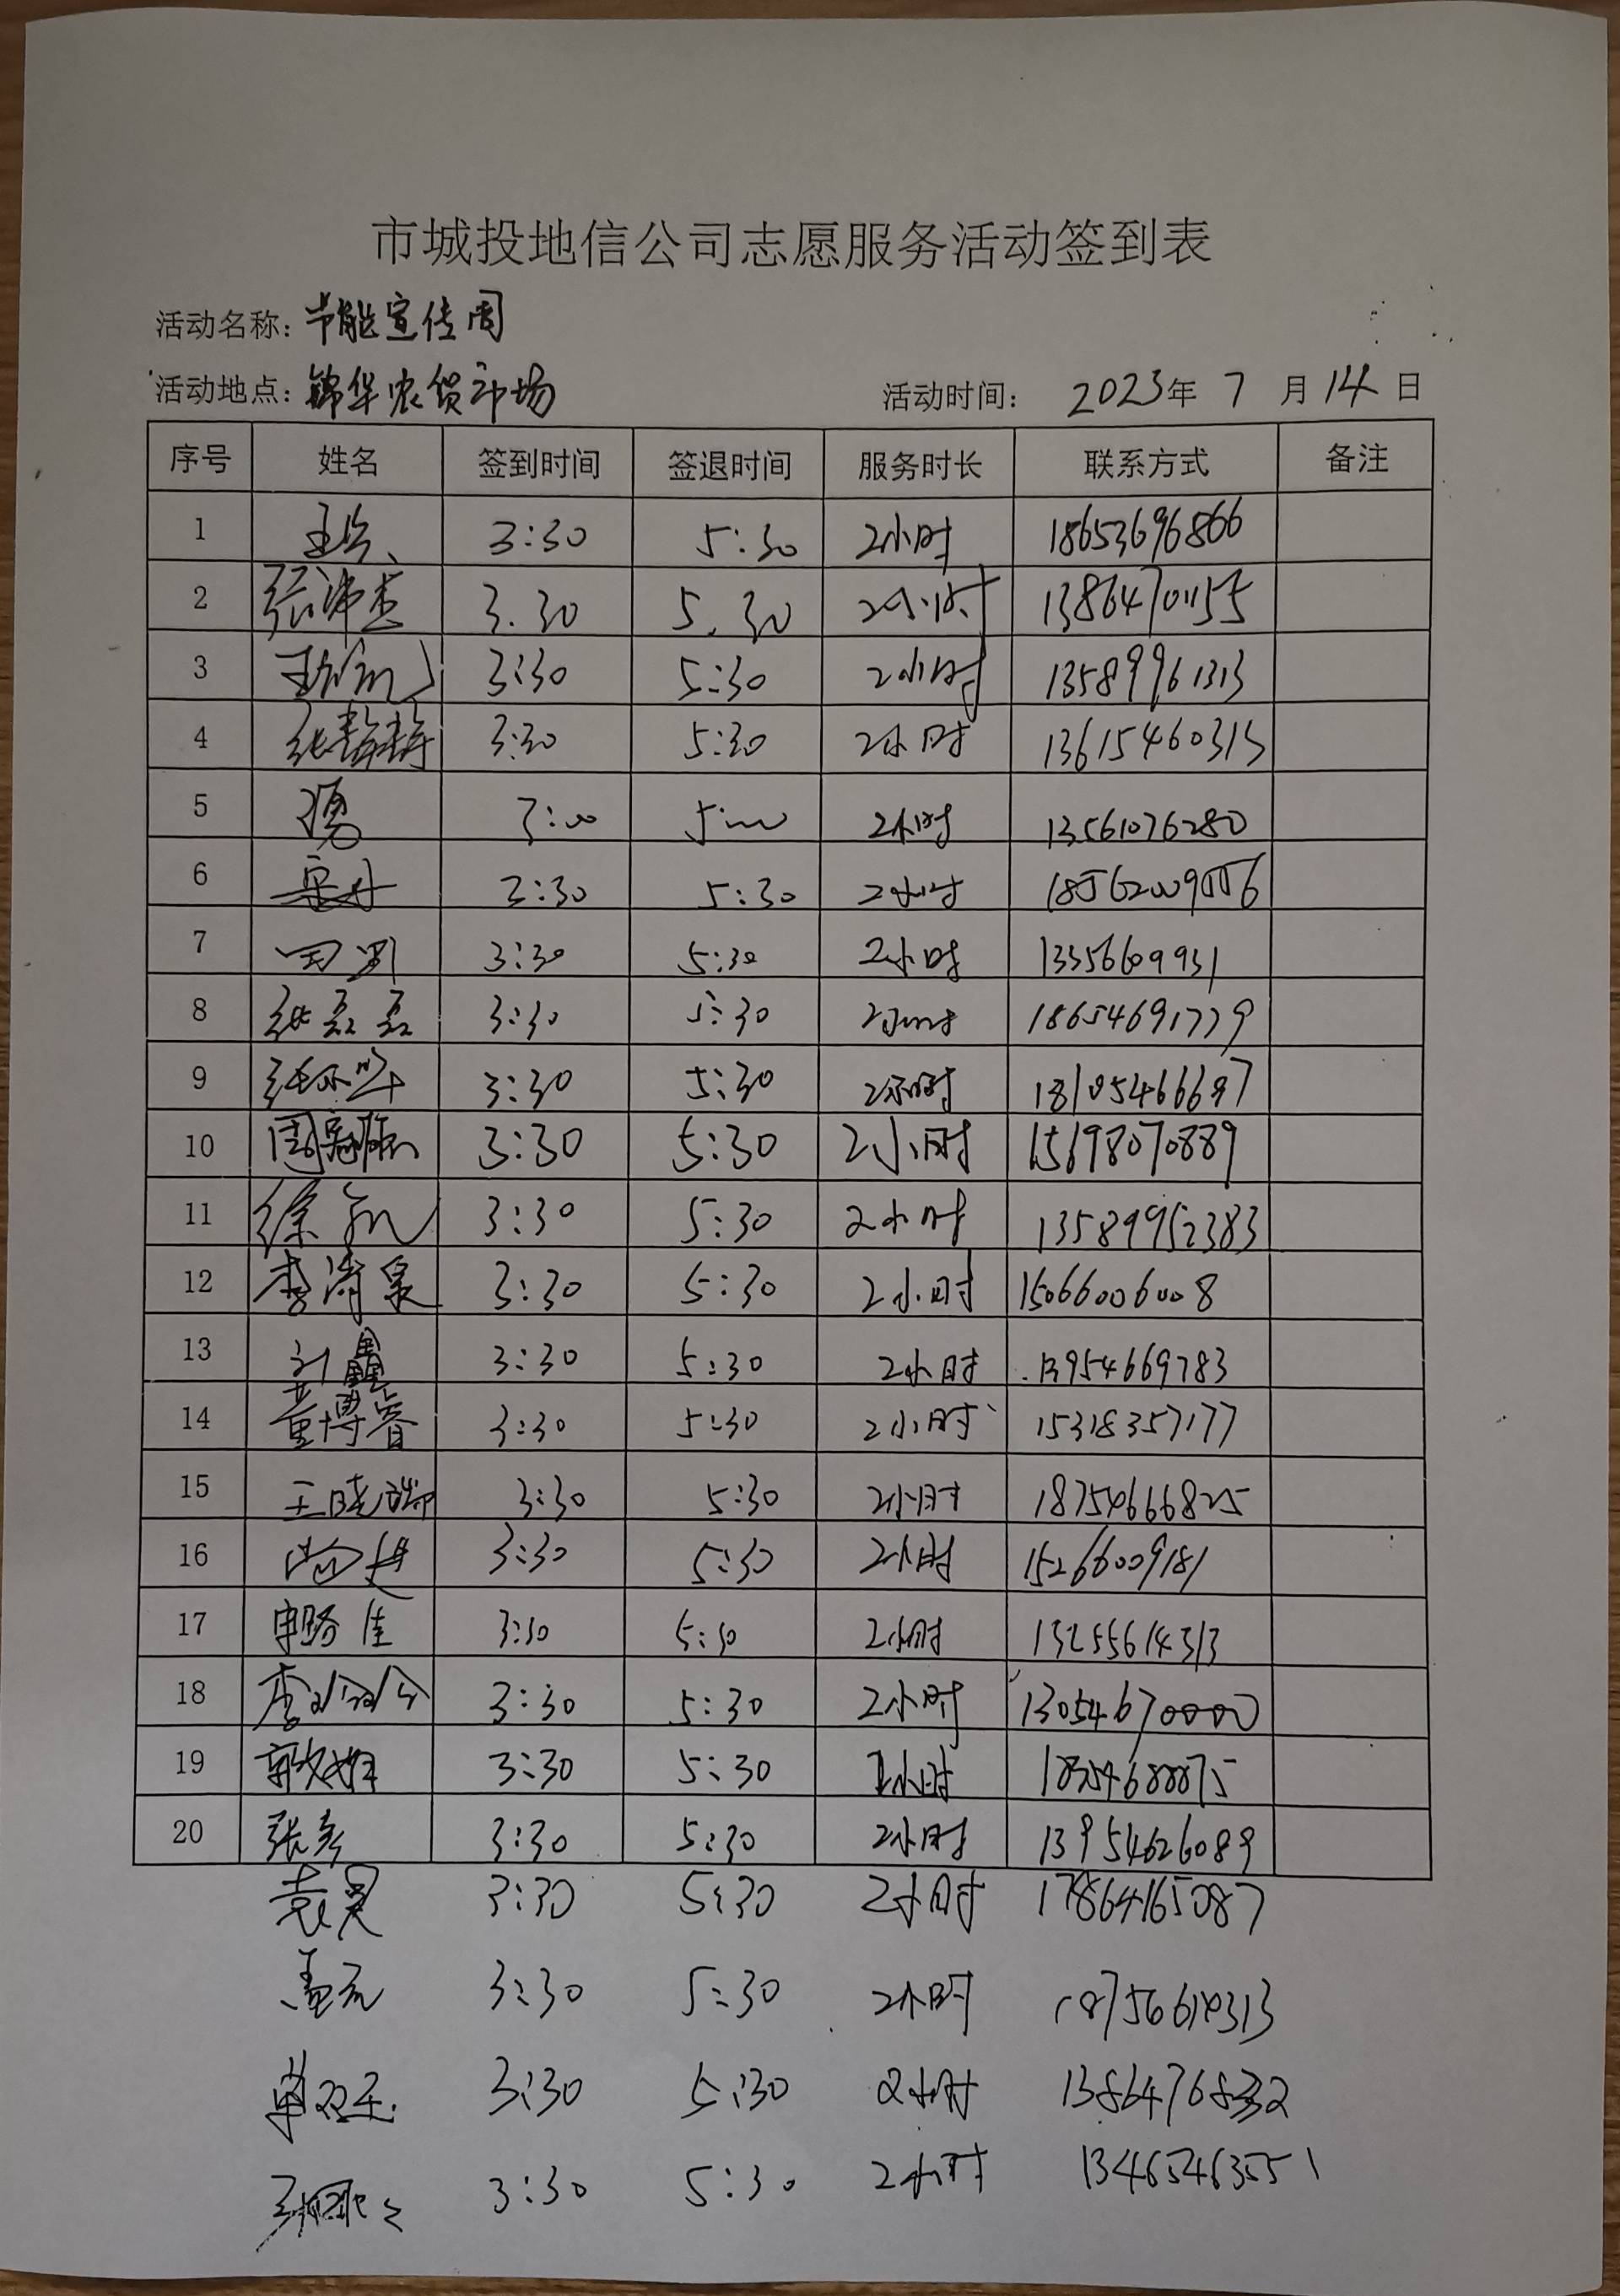 市城投地信公司志愿服务活动签到表
活动名称：节能宣传周
活动地点：锦华农贸市场 活动时间： 2023年 7 月 14 日
序号 姓名 签到时间 签退时间 服务时长 联系方式 备注
1 3:30 5:30 2小时 18653696866
2 3.30 5.30 2小时 13864701155
3 3:30 5:30 2小时 13589961313
4 张静静 3:30 5:30 2小时 13615460313
5 3:00 5:00 2小时 13561076280
6 3:30 5:30 2小时
7 3:30 5:30 2小时 13356609931
8 张磊磊 3:30 5:30 2小时 18654691779
9 3:30 5:30 2小时 18105466697
10 3:30 5:30 2小时 15698070889
11 徐 3:30 5:30 2小时 13589952383
12 李涛泉 3:30 5:30 2小时 15066006008
13 刘鑫 3:30 5:30 2小时 13954669783
14 董博睿 3:30 5:30 2小时 15318357177
15 王晓瑞 3:30 5:30 2小时 18754666825
16 尚进 3:30 5:30 2小时 15266009181
17 申路佳 3:30 5:30 2小时 13255614313
18 李 3:30 5:30 2小时 13054670000
19 3:30 5:30 2小时
20 张彦 3:30 5:30 2小时 13954626089
袁昊 3:30 5:30 2小时 17864165087
孟元 3:30 5:30 2小时
单双玉 3:30 5:30 2小时
3:30 5:30 2小时 13465463551